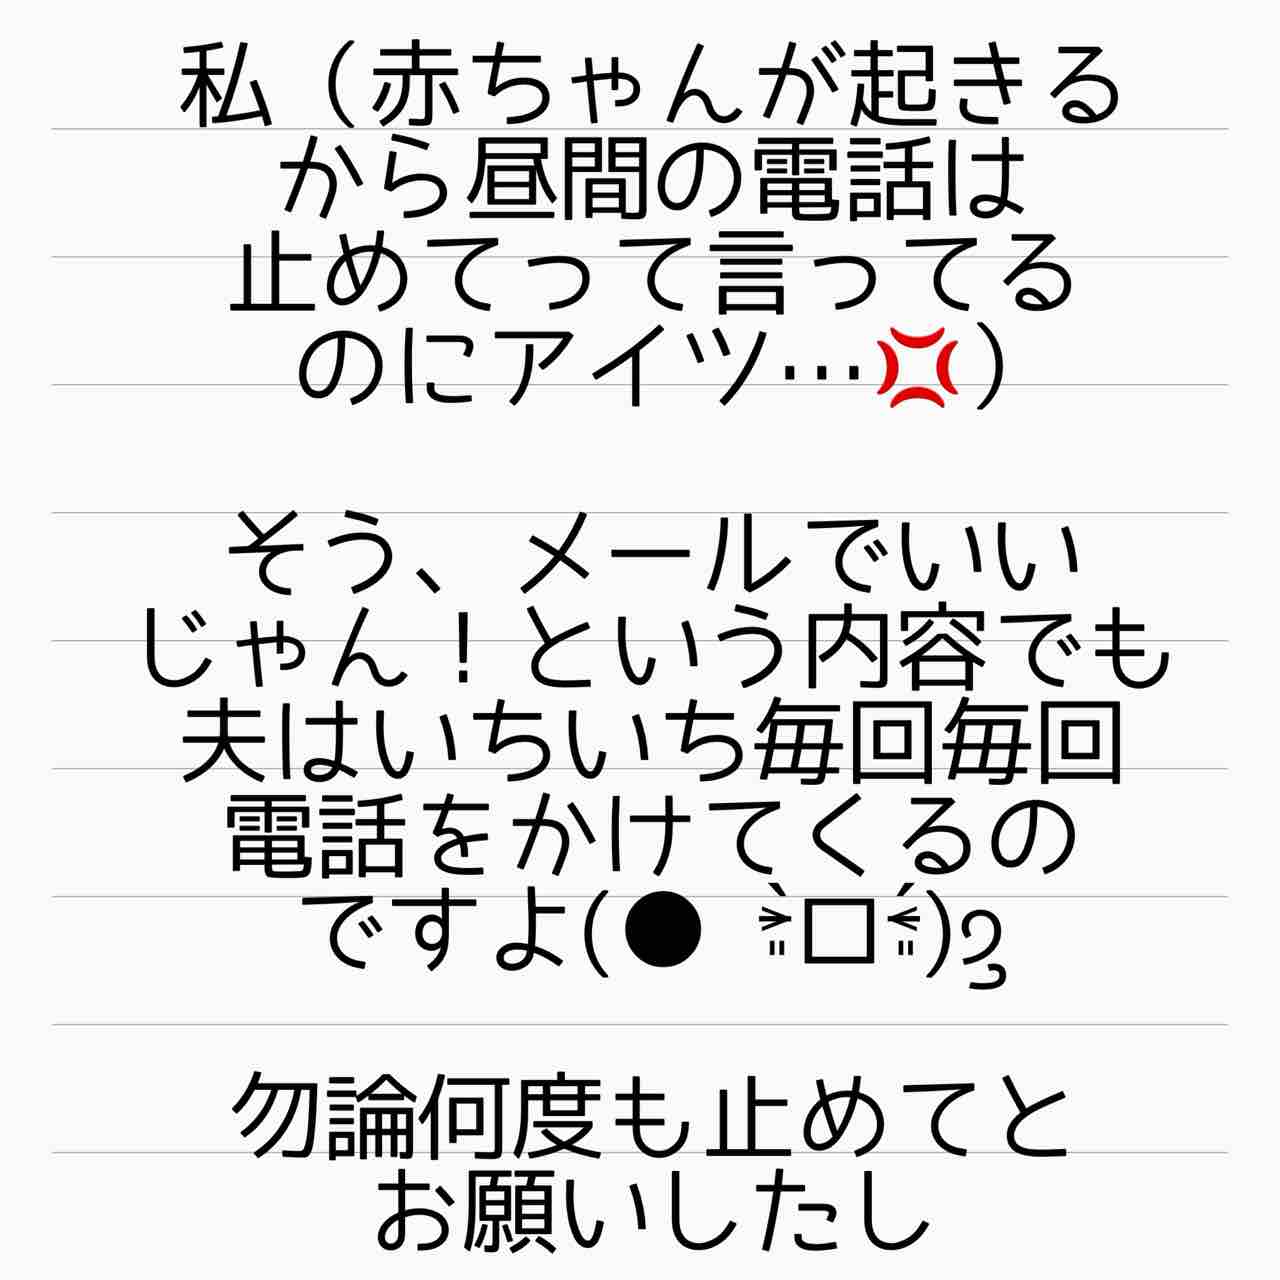 私（赤ちゃんが起きる
から昼間の電話は
止めてって言ってる
のにアイツ…💢）
そう、メールでいい
じゃん！という内容でも
夫はいちいち毎回毎回
電話をかけてくるの
ですよ(● ˃̶͈̀ロ˂̶͈́)੭ꠥ⁾⁾
勿論何度も止めてと
お願いしたし